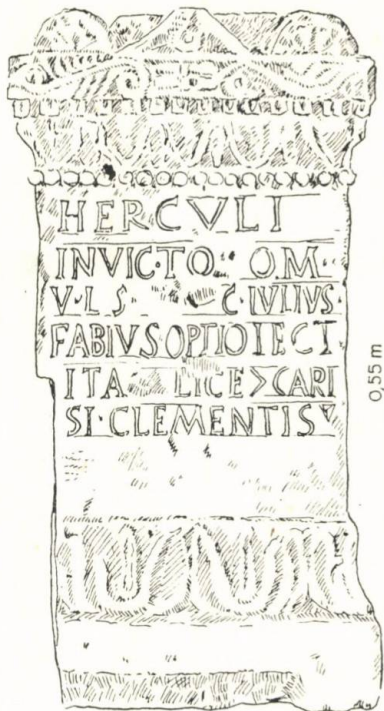 HERCVLI
INVIC·TO O·M·
V·L·S C·IVLIVS·
FABIVS·OPTIO
ITA LICE>CARI
SI·CLEMENTIS
0,55 m